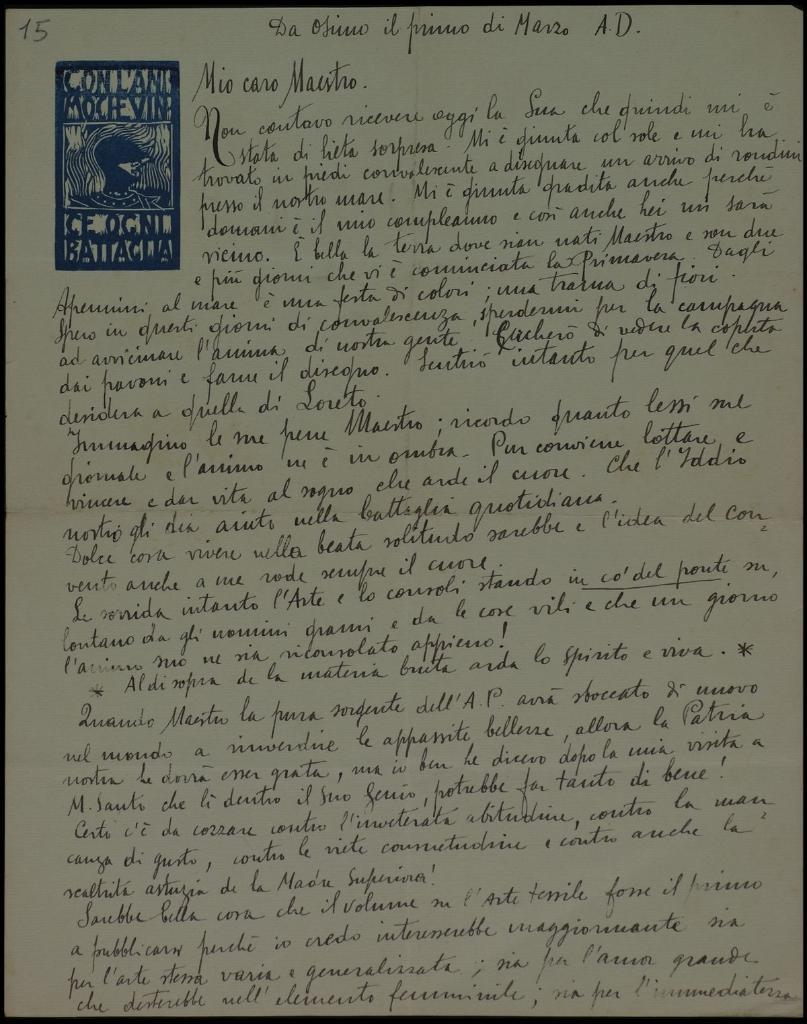 15
Da Osimo il primo di Marzo A.D.
CON L'ANI
MO CHE VIN
CE OGNI
BATTAGLIA
Mio caro Maestro.
Non contavo ricevere oggi la Sua che quindi mi è
stata di lieta sorpresa. Mi è giunta col sole e mi ha
trovato in piedi convalescente a disegnare un arrivo di rondini
presso il nostro mare. Mi è giunta gradita anche perchè
domani è il mio compleanno e così anche Lei mi sarà
vicino. È bella la terra dove siam nati Maestro e son due
e più giorni che vi è cominciata la Primavera. Dagli
Apennini al mare è una festa di colori; una trama di fiori.
Spero in questi giorni di convalescenza, sperdermi per la campagna
ad avvicinare l'anima di nostra gente. Cercherò di vedere la coperta
dai pavoni e farne il disegno. Sentirò intanto per quel che
desidera a quella di Loreto.
Immagino le sue pene Maestro; ricordo quanto lessi sul
giornale e l'animo ne è in ombra. Pur conviene lottare e
vincere e dar vita al sogno che arde il cuore. Che l'Iddio
nostro gli dia aiuto nella battaglia quotidiana.
Dolce cosa vivere nella beata solitudo sarebbe e l'idea del con=
vento anche a me rode sempre il cuore.
Le sorrida intanto l'Arte e lo consoli stando in co' del ponte su,
lontano da gli uomini grami e da le cose vili e che un giorno
l'animo suo ne sia riconsolato appieno!
* Al di sopra de la materia bruta arda lo Spirito e viva. *
Quando Maestro la pura sorgente dell'A.P. avrà sboccato di nuovo
nel mondo a rinverdire le appassite bellezze, allora la Patria
nostra le dovrà esser grata, ma io ben le dicevo dopo la mia visita a
M. Santo che lì dentro il Suo Genio, potrebbe far tanto di bene!
Certo c'è da cozzare contro l'inveterata abitudine, contro la man=
canza di gusto, contro le viete consuetudine e contro anche la
scaltrita astuzia de la Madre Superiora!
Sarebbe bella cosa che il volume su l'Arte tessile fosse il primo
a pubblicarsi perchè io credo interesserebbe maggiormente sia
per l'arte stessa varia e generalizzata; sia per l'amor grande
che desterebbe nell'elemento femminile; sia per l'immediatezza